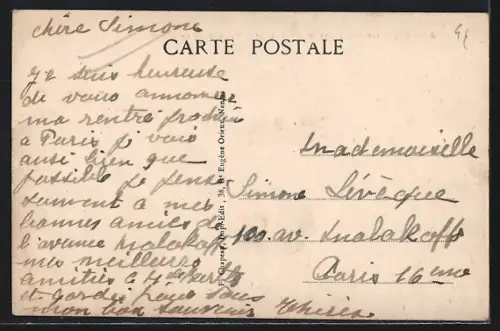 chère Simone
CARTE POSTALE
Je suis heureuse
de vous annoncer
ma rentré
a Paris je vais
aussi bien que
possible je pense
souvent à mes
bonnes amies de
l'avenue Malakoff
mes meilleurs
amitiés a
et gardé pour vous
mon bon souvenir Thérèse
Mademoiselle
Simone Lévêque
100 av. Malakoff
Paris 16eme
Edit., 38, r. Eugène Orieux, Nantes